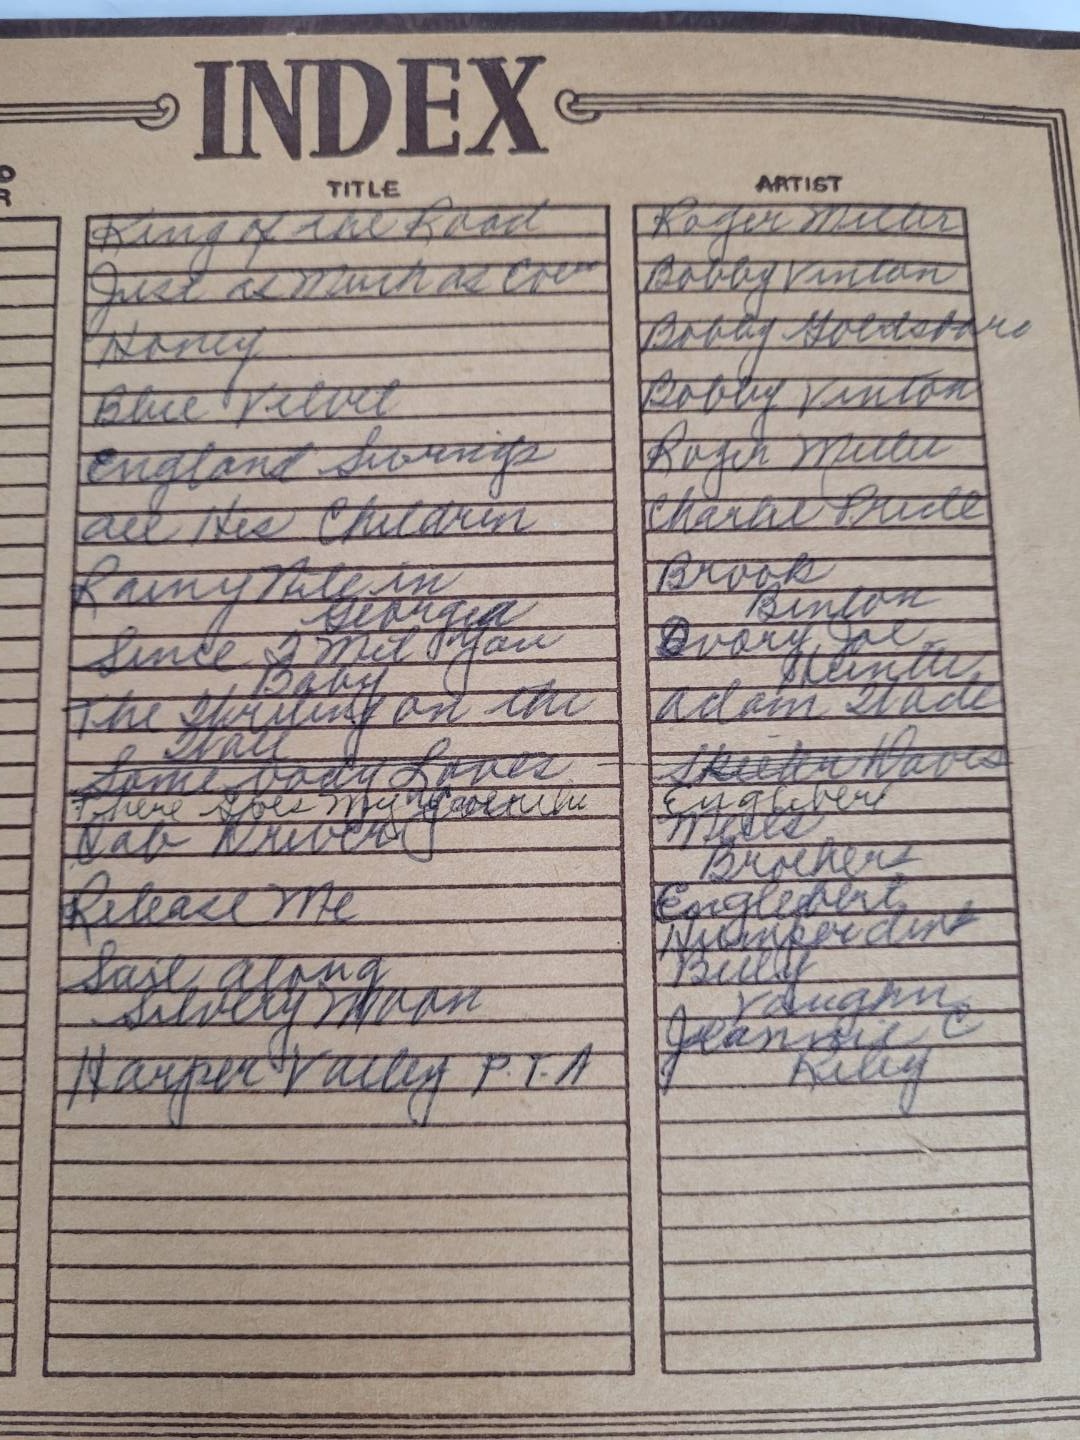 INDEX
TITLE ARTIST
King of the Road Roger Miller
Just as Much as Bobby Vinton
Honey Bobby Goldsboro
Blue Velvet Bobby Vinton
England Swings Roger Miller
All His Children Charlie Pride
Rainy Nite in Brook
Georgia Benton
Since I Met You Ivory Joe
Baby Hunter
The Writing on the Adam Wade
Wall
Somebody Loves Skeeter Davis
There Goes My Everything Englebert
Cab Driver Mills
Brothers
Release Me Englebert
Humperdink
Sail along Billy
Silvery Moon Vaughn
Jeannie C
Harper Valley P.T.A Riley